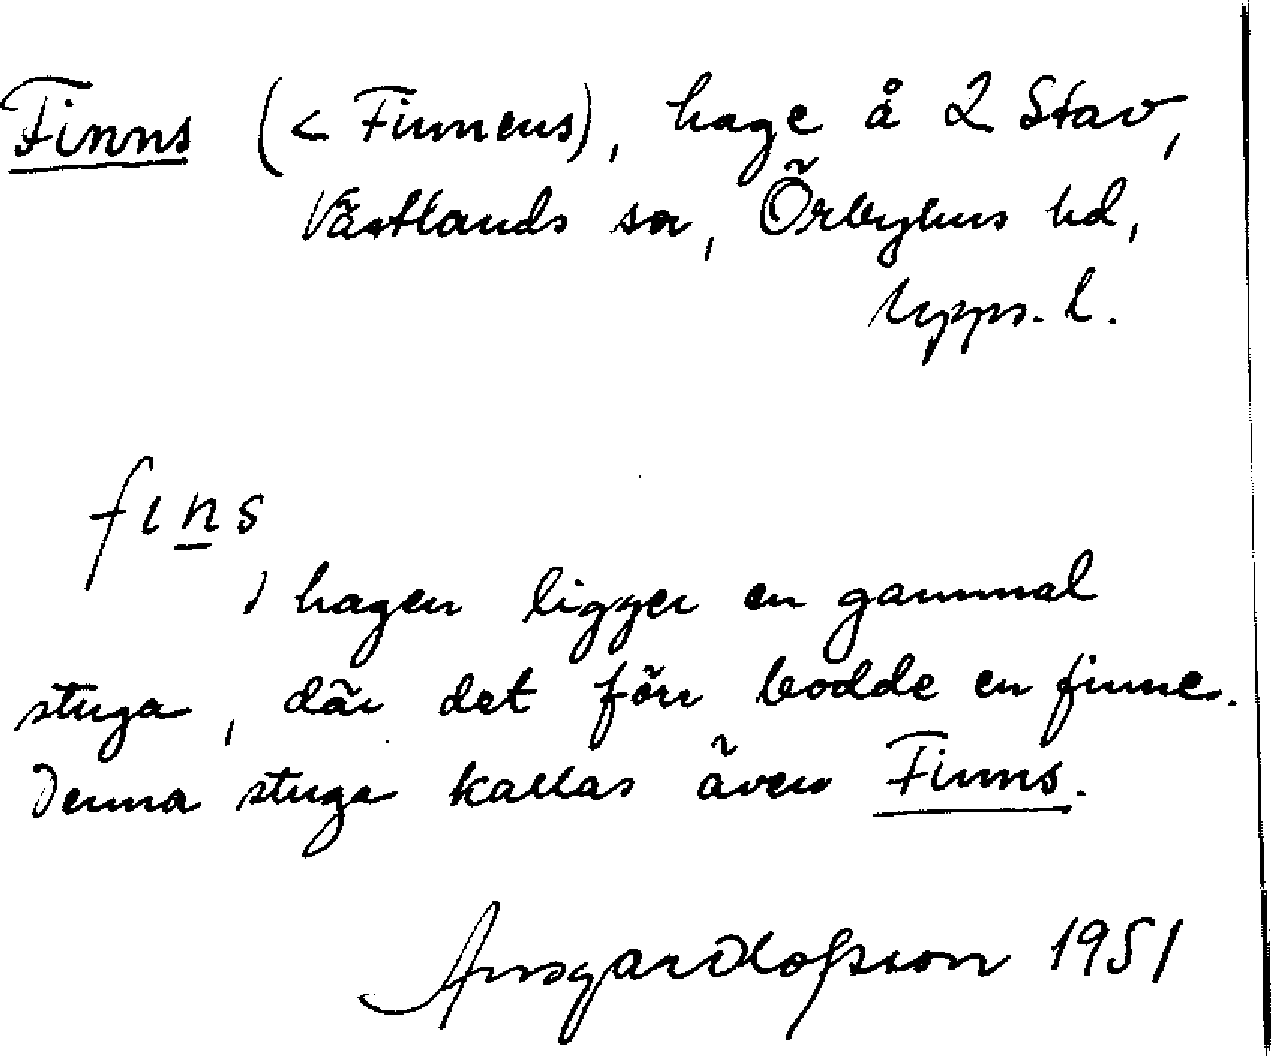 Finns (< Finnens), hage å 2 Stav,
Västlands sn, Örbyhus hd,
Upps. l.
fins
I hagen ligger en gammal
stuga, där det förr bodde en finne.
Denna stuga kallas även Finns.
Ansgar Olofsson 1951